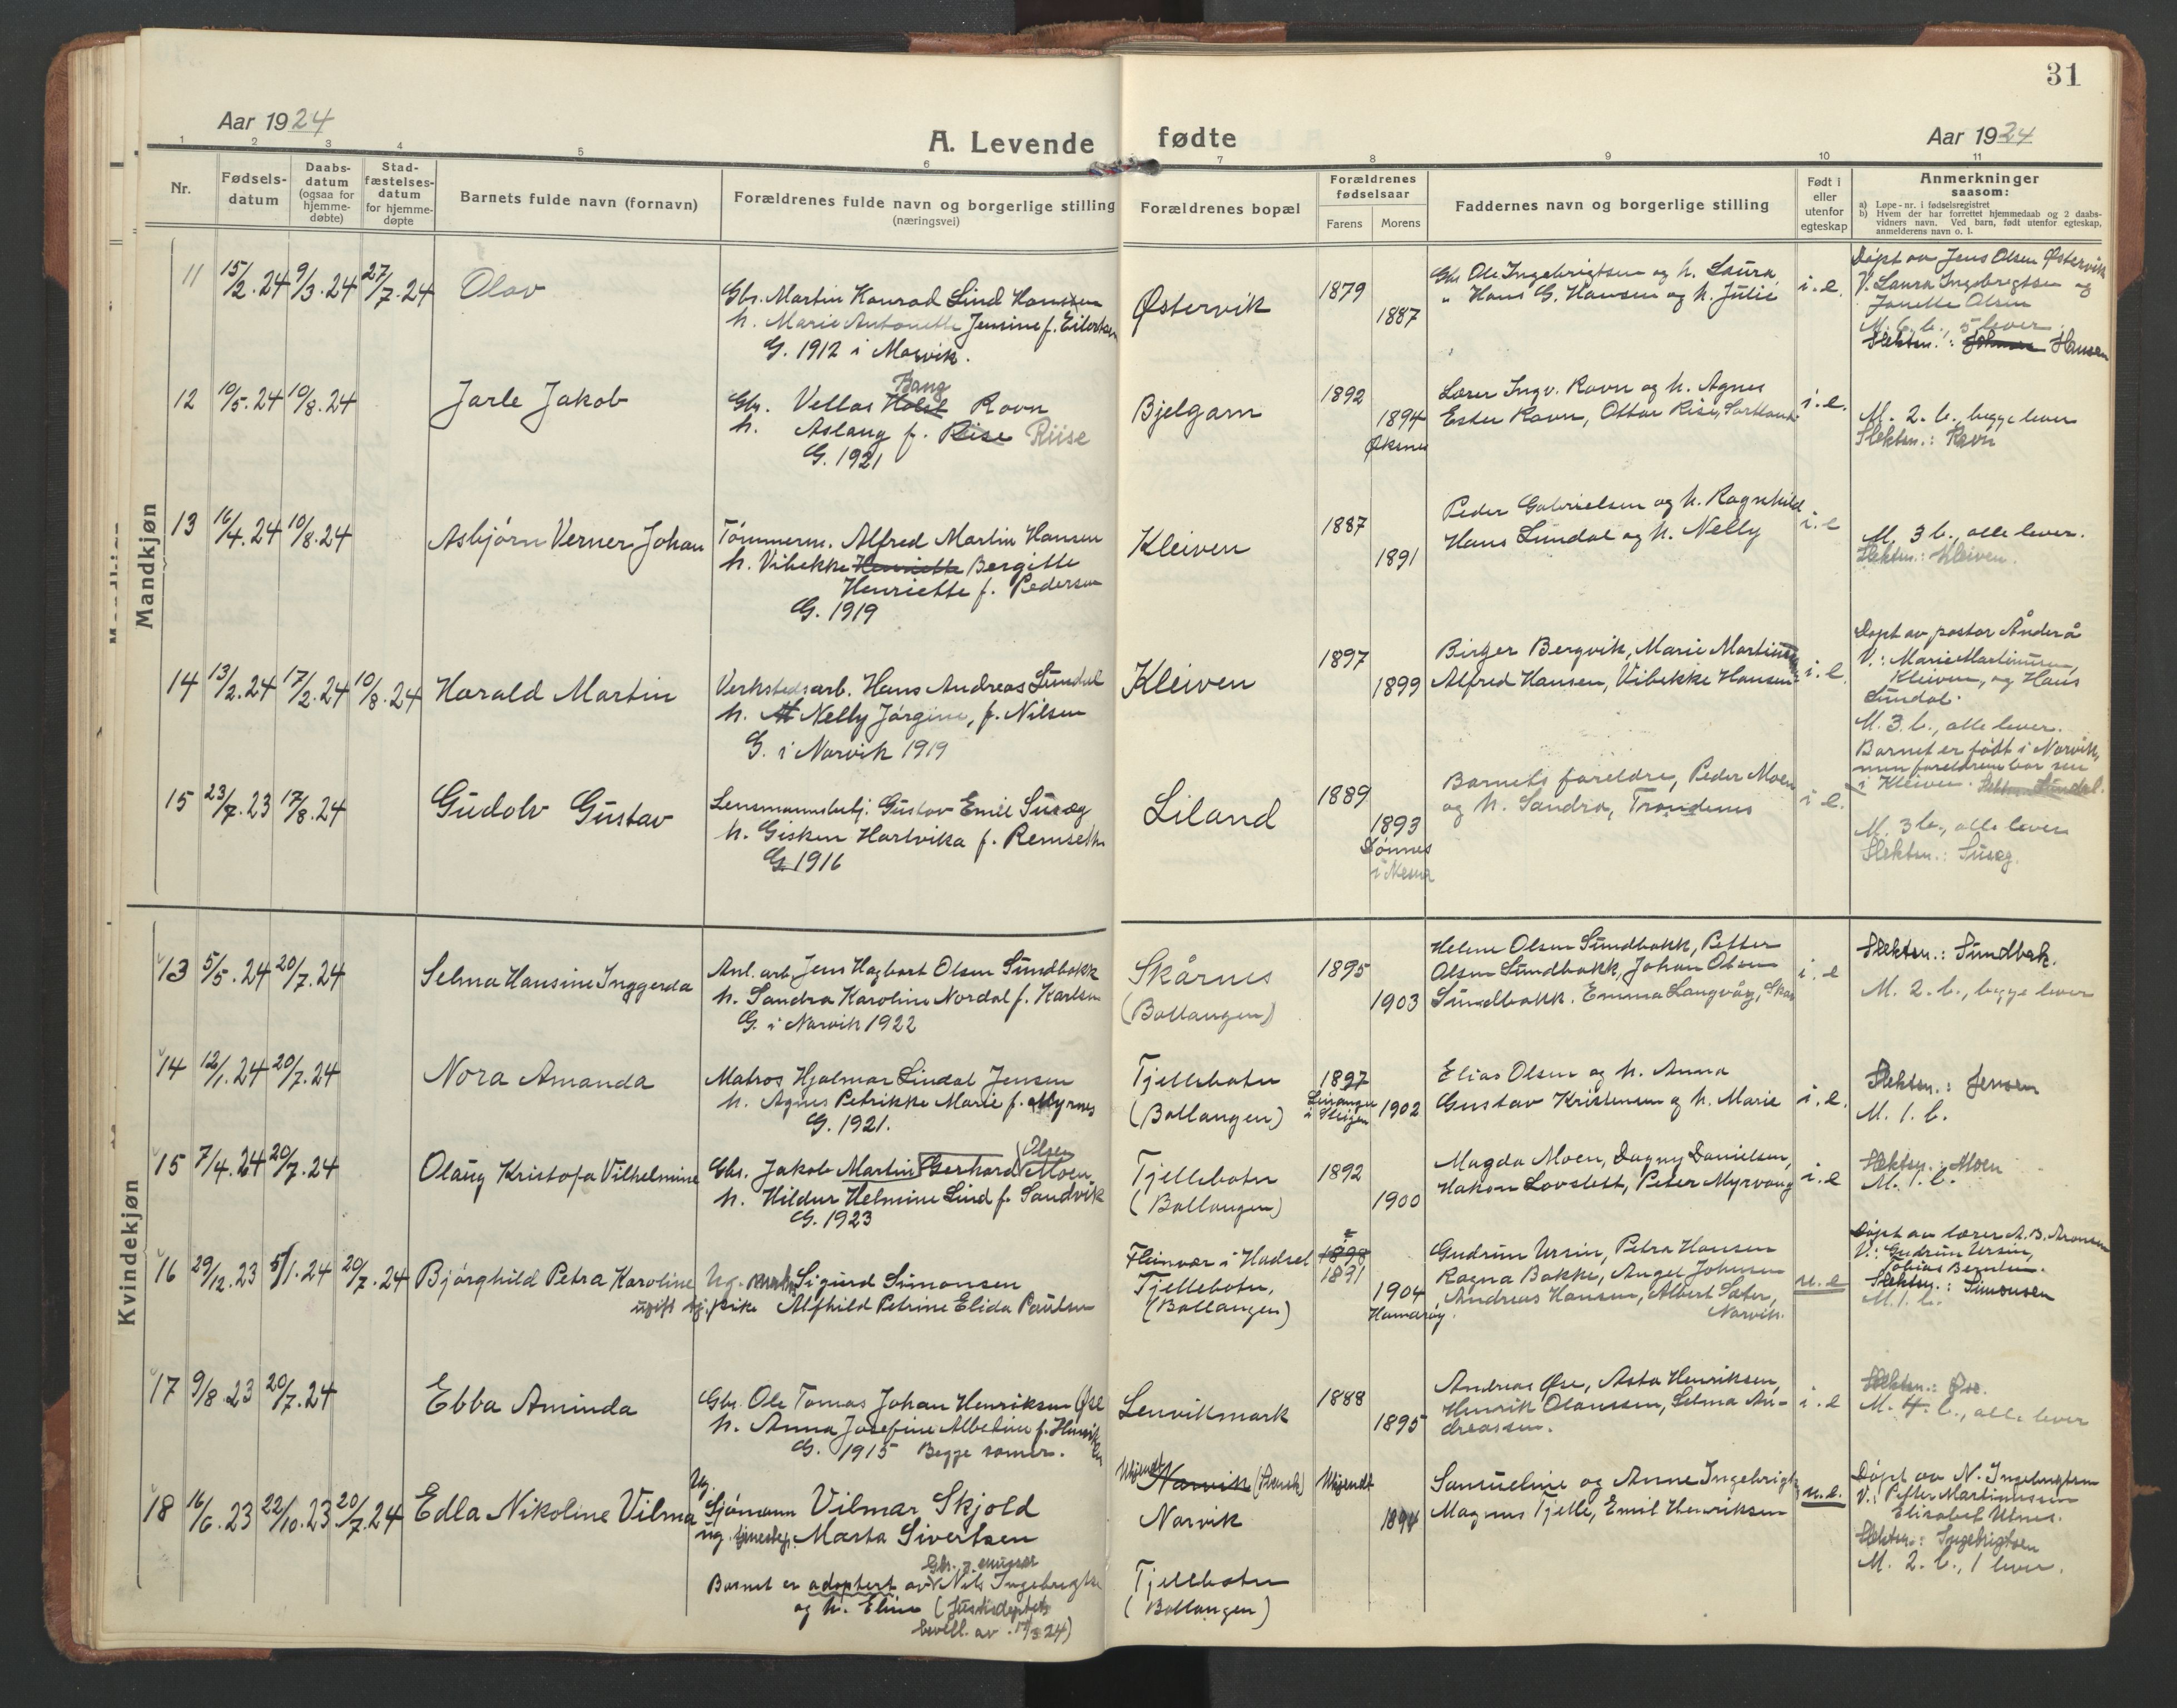 31
Aar 1924
A. Levende fødte
Aar 1924
1 2 3 4 5 6 7 8 9 10 11
Nr.
Fødsels-
datum
Daabs-
datum
(ogsaa for
hjemme-
døbte)
Stad-
fæstelses-
datum
for hjemme-
døpte
Barnets fulde navn (fornavn)
Forældrenes fulde navn og borgerlige stilling
(næringsvei)
Forældrenes bopæl
Forældrenes
fødselsaar
Farens Morens
Faddernes navn og borgerlige stilling
Født i
eller
utenfor
egteskap
Anmerkninger
saasom:
a) Løpe-nr. i fødselsregistret
b) Hvem der har forrettet hjemmedaab og 2 daabs-
vidners navn. Ved barn, født utenfor egteskap,
anmelderens navn o. l.
Mandkjøn
11 15/2.24 9/3.24 27/7.24 Olav
Gbr. Martin Konrad Lind Hansen
h. Marie Antonette Jensine f. Eilertsen
G. 1912 i Narvik.
Østervik
1879
1887
Gbr Ole Ingebrigtsen og h. Laura
" Hans G. Hansen og h. Julie
i.e.
Døpt av Jens Olsen Østervik
V. Laura Ingebrigtsen og
Janette Olsen
M. 6. b., 5 lever
Slektsn.: Hansen
12 10/5.24 10/8.24 Jarle Jakob
Bang
Gbr. Vellas Holst Ravn
h. Aslaug f. Riise Riise
G. 1921
Bjelgam
1892
1894
Øksnes
Lærer Ingv. Ravn og h. Agnes
Ester Ravn, Ottar Rise, Sortland
i.e.
M. 2. b., begge lever
Slektsn.: Ravn
13 16/4.24 10/8.24 Asbjørn Verner Johan
Tømmerm. Alfred Martin Hansen
h. Vibekke Henriette Bergitte
Henriette f. Pedersen
G. 1919
Kleiven
1887
1891
Peder Gabrielsen og h. Ragnhild
Hans Lundal og h. Nelly
i.e
M. 3 b., alle lever.
Slektsn.: Kleiven.
14 13/2.24 17/2.24 10/8.24 Harald Martin
Verkstedsarb. Hans Andreas Lundal
h. Nelly Jørgine, f. Nilsen
G. i Narvik 1919
Kleiven
1897
1899
Birger Bergvik, Marie Martinusen
Alfred Hansen, Vibekke Hansen
i.e.
Døpt av pastor Änderå
V.: Marie Martinusen,
Kleiven, og Hans
Lundal.
M. 3. b., alle lever.
Barnet er født i Narvik,
men foreldrene bor nu
i Kleiven. Slektsn. Lundal.
15 23/7.23 17/8.24 Gudolv Gustav
Lensmannsbetj. Gustav Emil Susæg
h. Gisken Hartvika f. Remseth
G. 1916
Liland
1889
1893
Dønnes
i Nesna
Barnets foreldre, Peder Moen
og h. Sandra, Trondenes
i.e.
M. 3 b., alle lever
Slektsn.: Susæg.
Kvindekjøn
13 5/5.24 20/7.24 Selma Hansine Inggerda
Anl. arb. Jens Hagbart Olsen Sundbakk
h. Sandra Karoline Nordal f. Karlsen
G. i Narvik 1922
Skårnes
(Ballangen)
1895
1903
Helene Olsen Sundbakk, Petter
Olsen Sundbakk, Johan Olsen
Sundbakk. Emma Langvåg, Skar
i.e
Slektsn.: Sundbak.
M. 2. b., begge lever
14 12/1.24 20/7.24 Nora Amanda
Matros Hjalmar Lindal Jensen
h. Agnes Petrikke Marie f. Myrnes
G. 1921.
Tjellebotn
(Ballangen)
1897
Leinanger
i Steigen
1902
Elias Olsen og h. Anna
Gustav Kristensen og h. Marie
i.e.
Slektsn.: Jensen
M. 1. b.
15 7/4.24 20/7.24 Olaug Kristofa Vilhelmine
Olsen
Gbr. Jakob Martin Gerhard Moen
h. Hildur Helmine Lind f. Sandvik
G. 1923
Tjellebotn
(Ballangen)
1892
1900
Magda Moen, Dagny Danielsen,
Hakon Lovslett, Peter Myrvang
i.e
Slektsn.: Moen
M. 1. b.
16 29/12.23 5/1.24 20/7.24 Bjørghild Petra Karoline
Ug. Sigurd Simonsen
ugift tj.pike Alfhild Petrine Elida Paulsen
Fleinvær i Hadsel
Tjellebotn,
(Ballangen)
1898
1891
1904
Hamarøy.
Gudrun Ursin, Petra Hansen
Ragna Bakke, Angel Johnsen
Andreas Hansen, Albert Sæter,
Narvik.
u.e
Døpt av lærer A. B. Aronsen
V.: Gudrun Ursin,
Tobias Berntsen.
Slektsn.: Simonsen
M. 1. b.
17 9/8.23 20/7.24 Ebba Aminda
Gbr. Ole Tomas Johan Henriksen Øse
h. Anna Josefine Albertine f. Henriksen
G. 1915 Begge samer.
Lenvikmark
1888
1895
Andreas Øse, Asta Henriksen,
Henrik Olaussen, Selma An-
dreassen.
i.e
Slektsn.: Øse.
M. 4. b., alle lever
18 16/6.23 22/10.23 20/7.24 Edla Nikoline Vilma
Ug.
Sjømann Vilmar Skjold
ug. tjenestep. Marta Sivertsen
Gbr. og emissær
Barnet er adoptert av Nils Ingebrigtsen
og h. Eline (Justisdeptets
bevill. av 24)
Ukjendt
Narvik (Dansk)
Narvik
Tjellebotn
(Ballangen)
Ukjendt
1894
Samueline og Anne Ingebrigts
Magnus Tjelle, Emil Henriksen
u.e.
Døpt av N. Ingebrigtsen
V.: Petter Martinussen
Elisabet Utnes.
Slektsn.: Ingebrigtsen
M. 2. b., 1 lever.